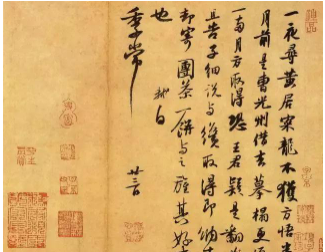 一夜尋黃居寀龍不獲方悟
月前是曹光州借去摹搨更
一兩月方取得恐王君疑是翻
且告子細說與纔取得即納
却寄團茶一餅與之旌其好
也 軾白
季常 廿三日